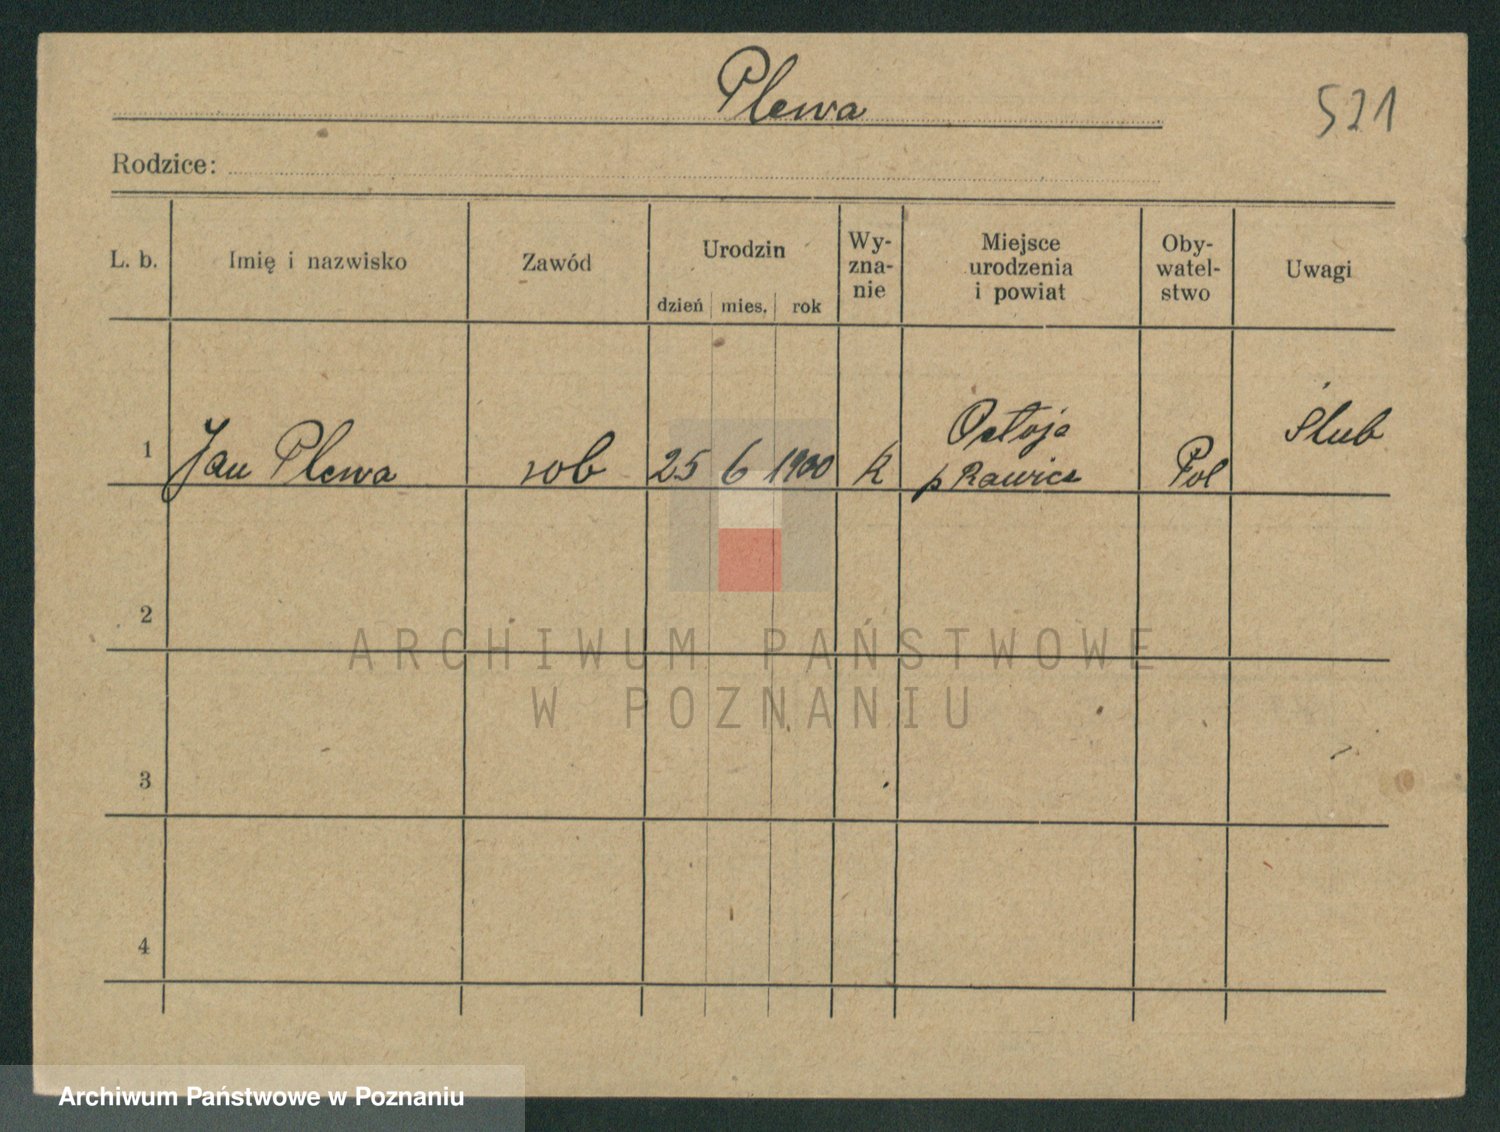 Plewa
521
Rodzice:
L. b.
Imię i nazwisko
Zawód
Urodzin
dzień mies. rok
Wy-
zna-
nie
Miejsce
urodzenia
i powiat
Oby-
watel-
stwo
Uwagi
1 Jan Plewa rob 25 6 1900 k
p Rawicz
Pol
Ślub
2
3
4
ARCHIWUM PAŃSTWOWE
W POZNANIU
Archiwum Państwowe w Poznaniu